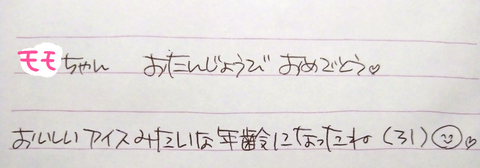 モモちゃん おたんじょうび おめでとう♡
おいしいアイスみたいな年齢になったね(31)☺♡